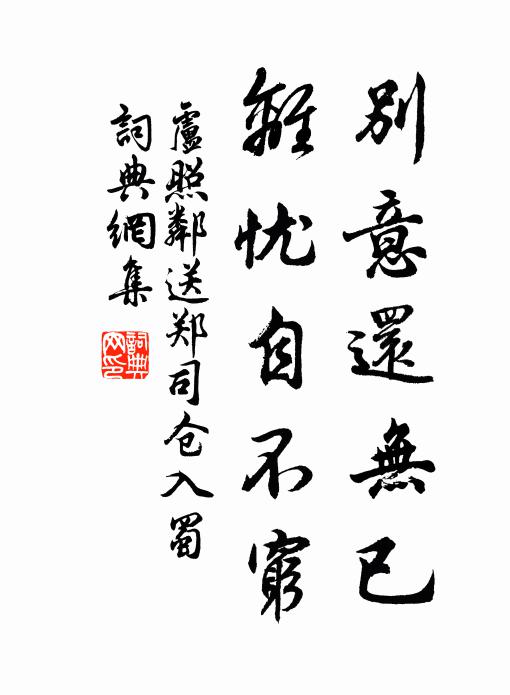 別意還無已
離忧自不窮
盧照鄰送郑司仓入蜀
詞典網集
詞典
网印